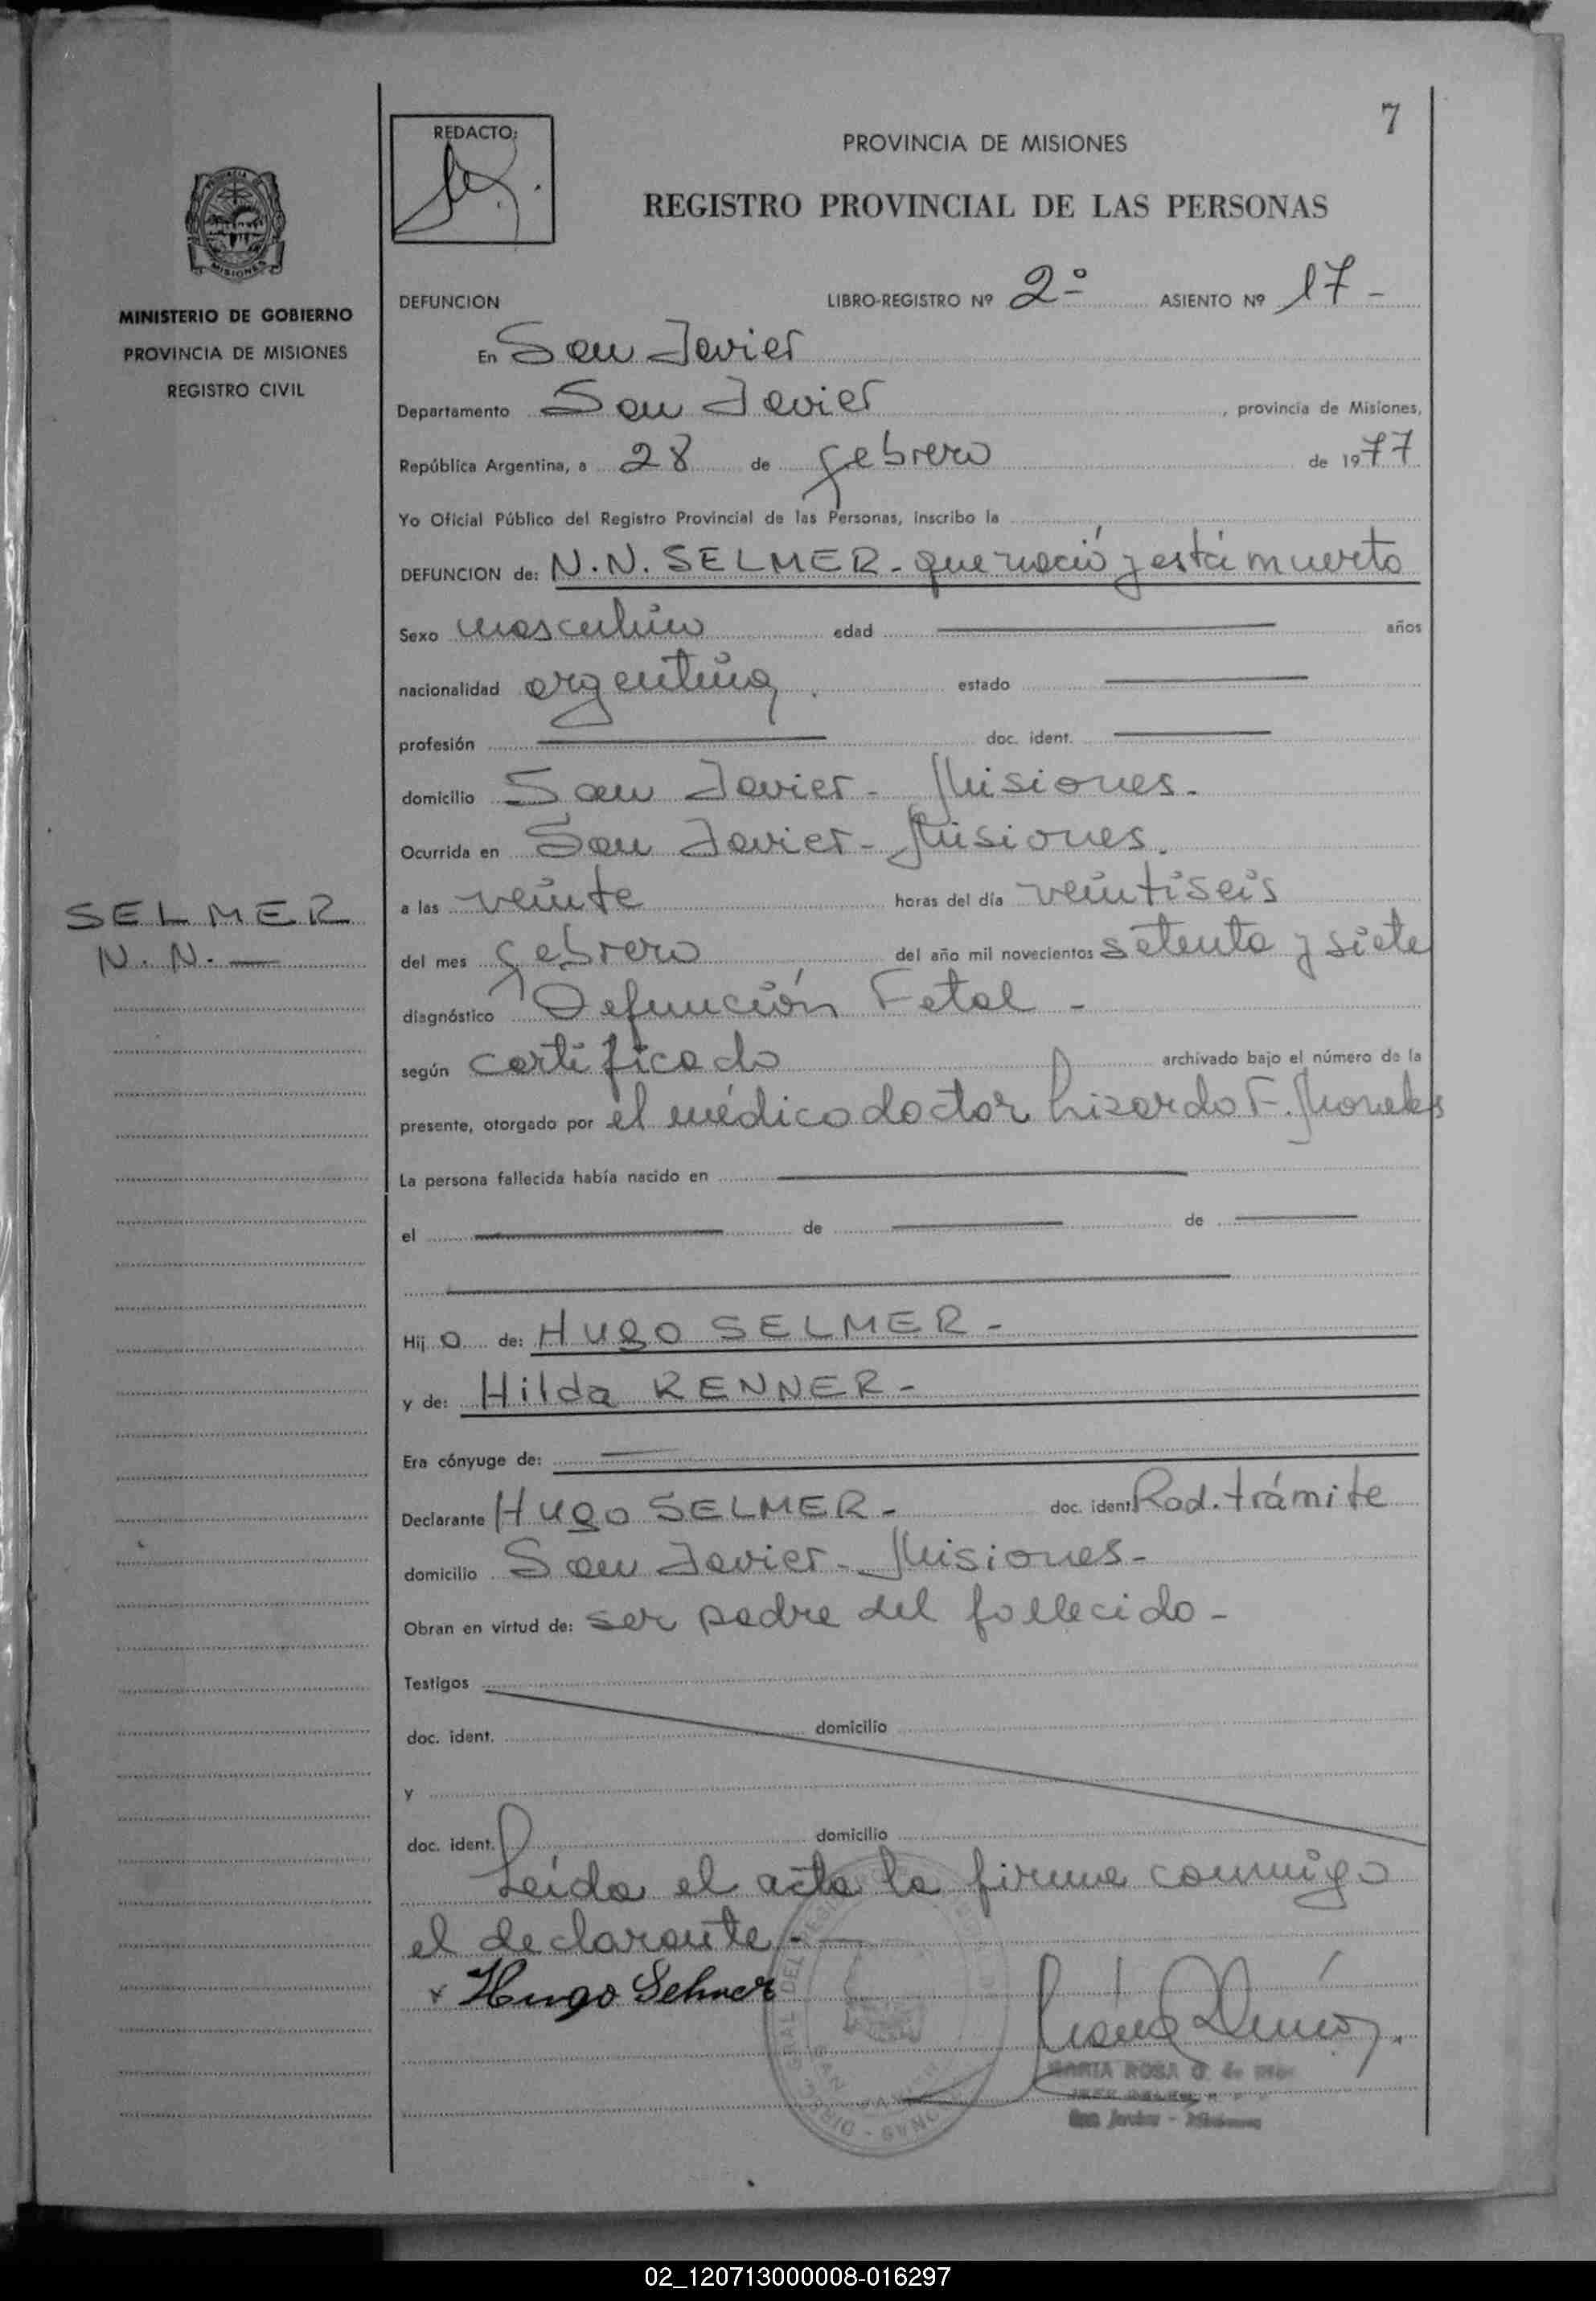 7
REDACTO:
PROVINCIA DE MISIONES
REGISTRO PROVINCIAL DE LAS PERSONAS
MISIONES
MINISTERIO DE GOBIERNO
PROVINCIA DE MISIONES
REGISTRO CIVIL
DEFUNCION LIBRO-REGISTRO Nº 2º ASIENTO Nº 17 -
En San Javier
Departamento San Javier, provincia de Misiones,
República Argentina, a 28 de febrero de 1977
Yo Oficial Público del Registro Provincial de las Personas, inscribo la
DEFUNCION de: N.N. SELMER - que nació y está muerto
Sexo masculino edad años
nacionalidad argentina. estado
profesión doc. ident.
domicilio San Javier - Misiones.
Ocurrida en San Javier - Misiones.
SELMER
N. N. —
a las veinte horas del día veintiseis
del mes febrero del año mil novecientos setenta y siete
diagnóstico Defunción Fetal -
según certificado archivado bajo el número de la
presente, otorgado por el médico doctor Lizardo F. Morales
La persona fallecida había nacido en
el de de
Hijo de: HUGO SELMER -
y de: Hilda RENNER -
Era cónyuge de:
Declarante HUGO SELMER - doc. ident. Rad. trámite
domicilio San Javier - Misiones -
Obran en virtud de: ser padre del fallecido -
Testigos
doc. ident. domicilio
y
doc. ident. domicilio
Leída el acta la firma conmigo
el declarante. -
x Hugo Selmer
MARIA ROSA
San Javier - Misiones
02_120713000008-016297